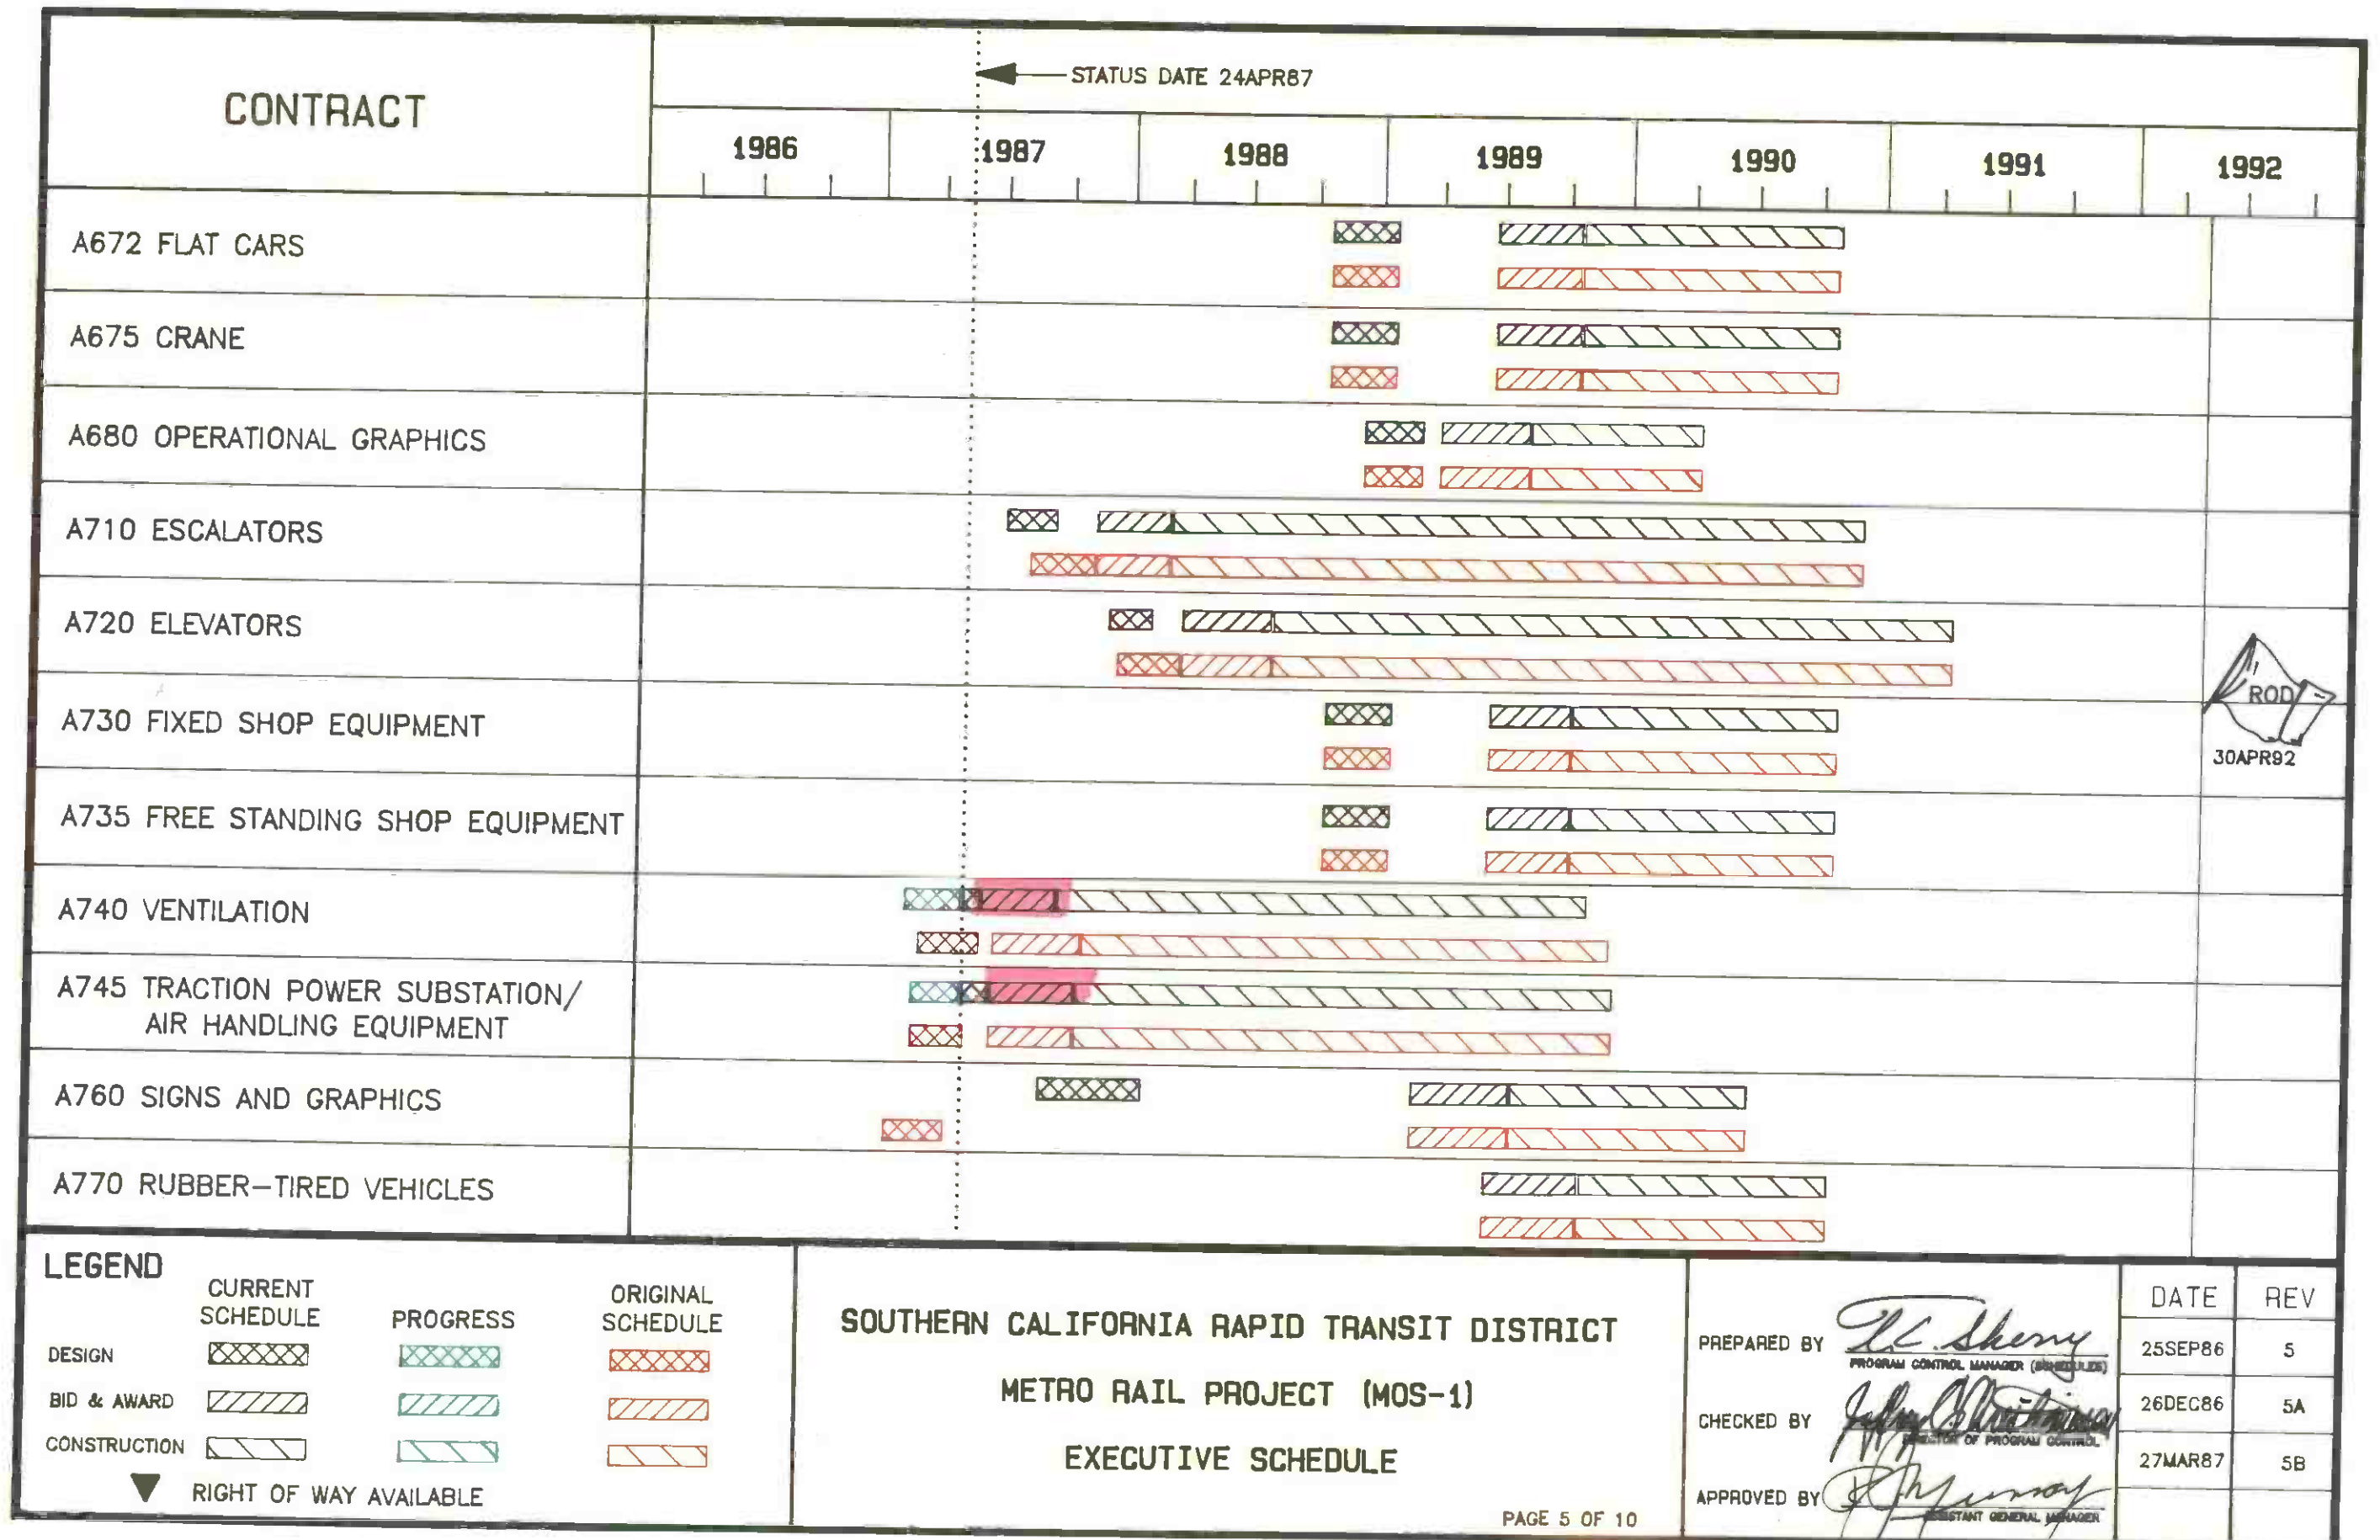 CONTRACT
STATUS DATE 24APR87
1986 1987 1988 1989 1990 1991 1992
A672 FLAT CARS
A675 CRANE
A680 OPERATIONAL GRAPHICS
A710 ESCALATORS
A720 ELEVATORS
ROD
A730 FIXED SHOP EQUIPMENT
30APR92
A735 FREE STANDING SHOP EQUIPMENT
A740 VENTILATION
A745 TRACTION POWER SUBSTATION/
AIR HANDLING EQUIPMENT
A760 SIGNS AND GRAPHICS
A770 RUBBER-TIRED VEHICLES
LEGEND
CURRENT
SCHEDULE
PROGRESS
ORIGINAL
SCHEDULE
DESIGN
BID & AWARD
CONSTRUCTION
RIGHT OF WAY AVAILABLE
SOUTHERN CALIFORNIA RAPID TRANSIT DISTRICT
METRO RAIL PROJECT (MOS-1)
EXECUTIVE SCHEDULE
PAGE 5 OF 10
PREPARED BY
PROGRAM CONTROL MANAGER (SCHEDULES)
CHECKED BY
DIRECTOR OF PROGRAM CONTROL
APPROVED BY
ASSISTANT GENERAL MANAGER
DATE REV
25SEP86 5
26DEC86 5A
27MAR87 5B